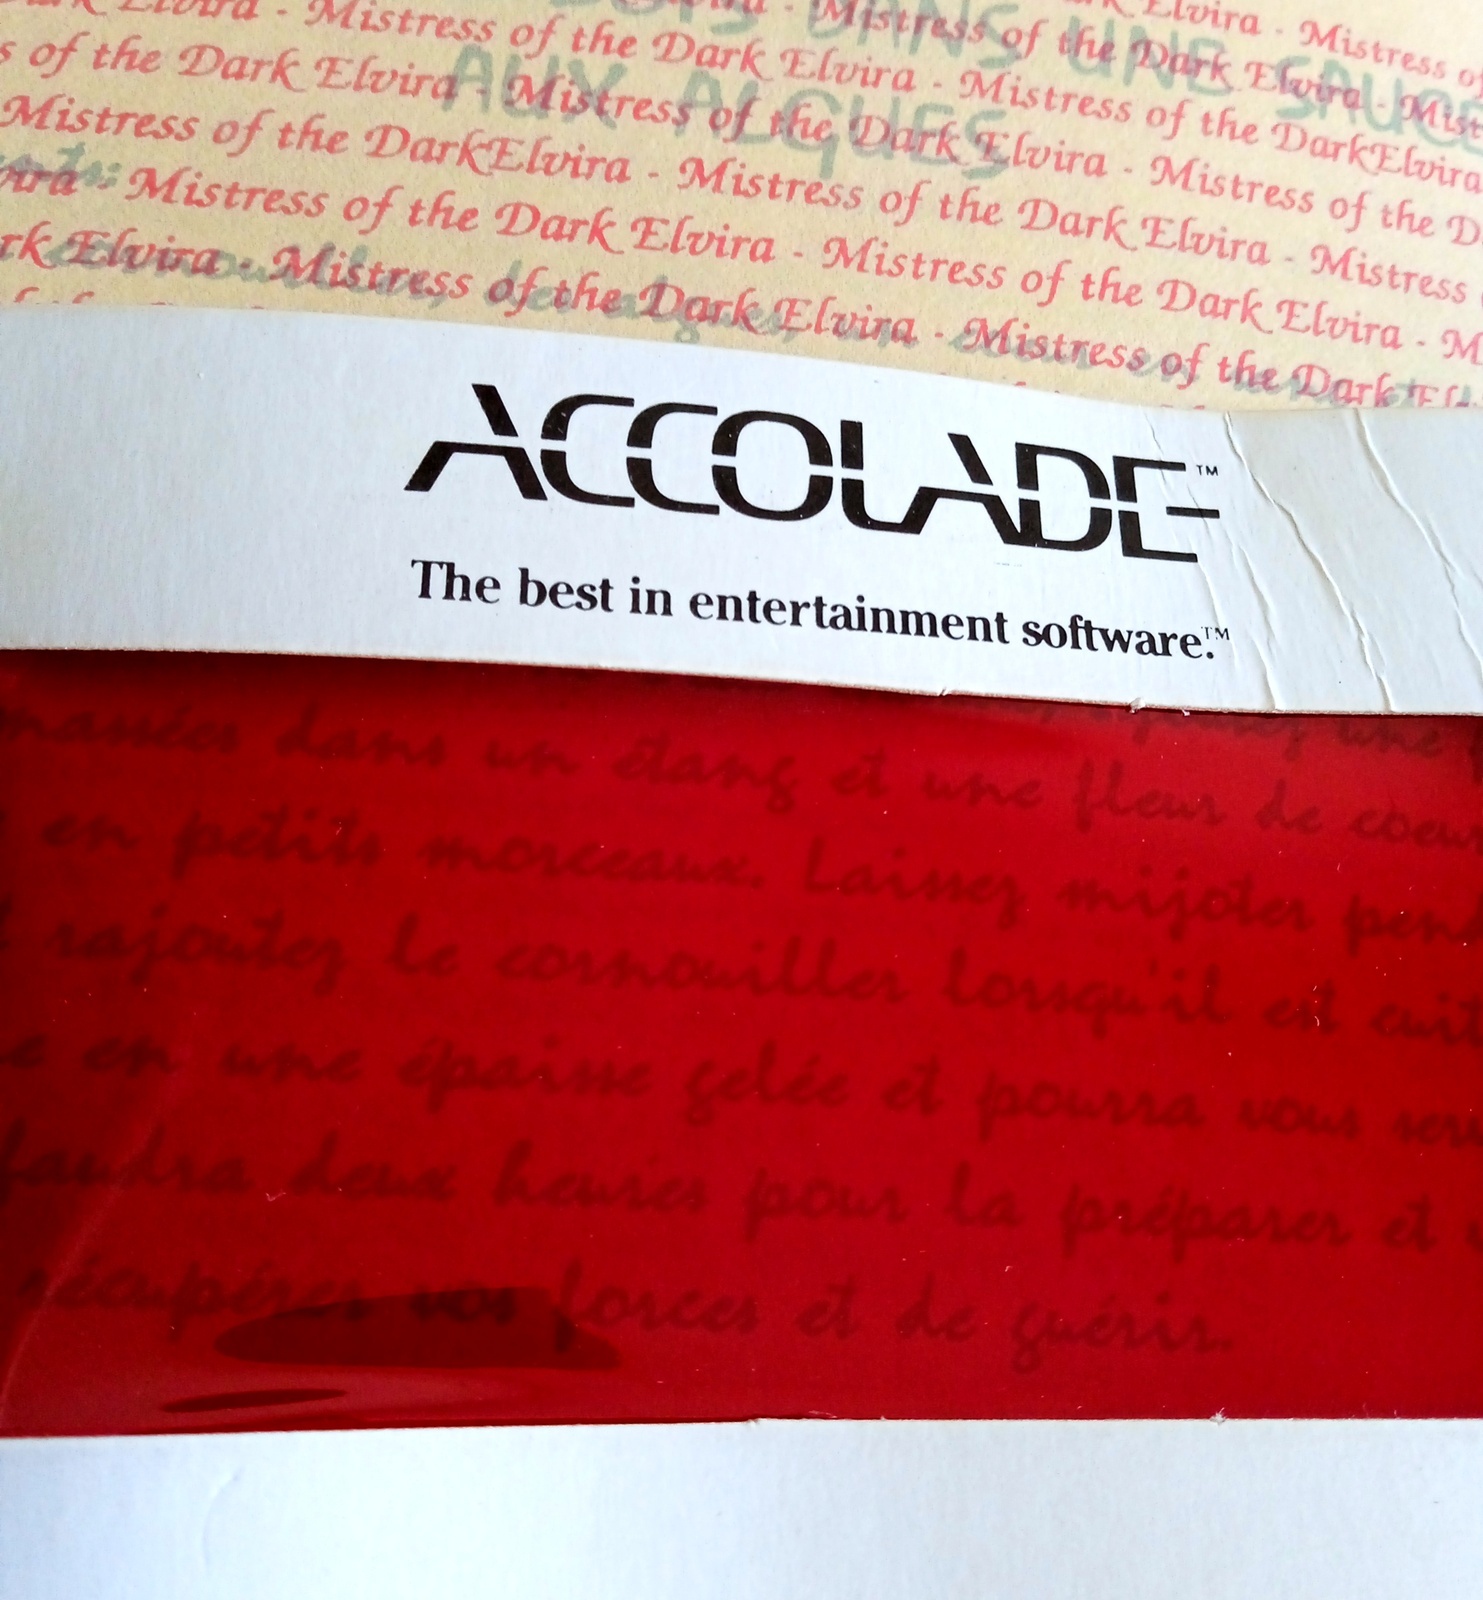 Dark Elvira - Mistress of the Dark Elvira - Mistress of the Dark Elvira - Mistress of
BOIS DANS UNE SAUCE
s of the Dark Elvira - Mistress of the Dark Elvira - Mistress of the DarkElvira
AUX ALGUES
Mistress of the DarkElvira - Mistress of the Dark Elvira - Mistress of the D
vira - Mistress of the Dark Elvira - Mistress of the Dark Elvira - Mistress
rk Elvira - Mistress of the Dark Elvira - Mistress of the Dark
ACCOLADE™
The best in entertainment software.™
dans un étang et une fleur de coeur
en petits morceaux. Laissez mijoter pen
rajoutez le cornouiller lorsqu'il est cuit
e en une épaisse gelée et pourra vous serv
faudra deux heures pour la préparer et
récupérer vos forces et de guérir.